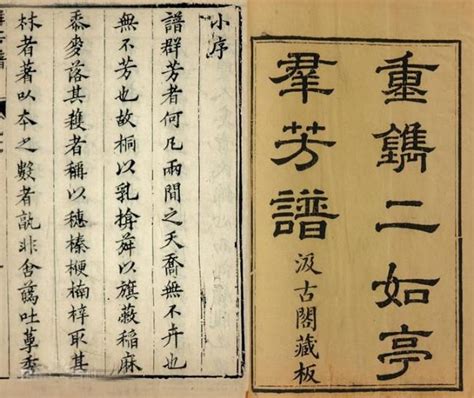 重鐫二如亭
羣芳譜
汲古閣藏板
小序
譜群芳者何凡兩間之夭喬無不卉也
無不芳也故桐以乳舜以旗菽稻麻
黍麥落其穫者稱以穗榛楩楠梓取其
林者著以本之數者孰非含吐萼